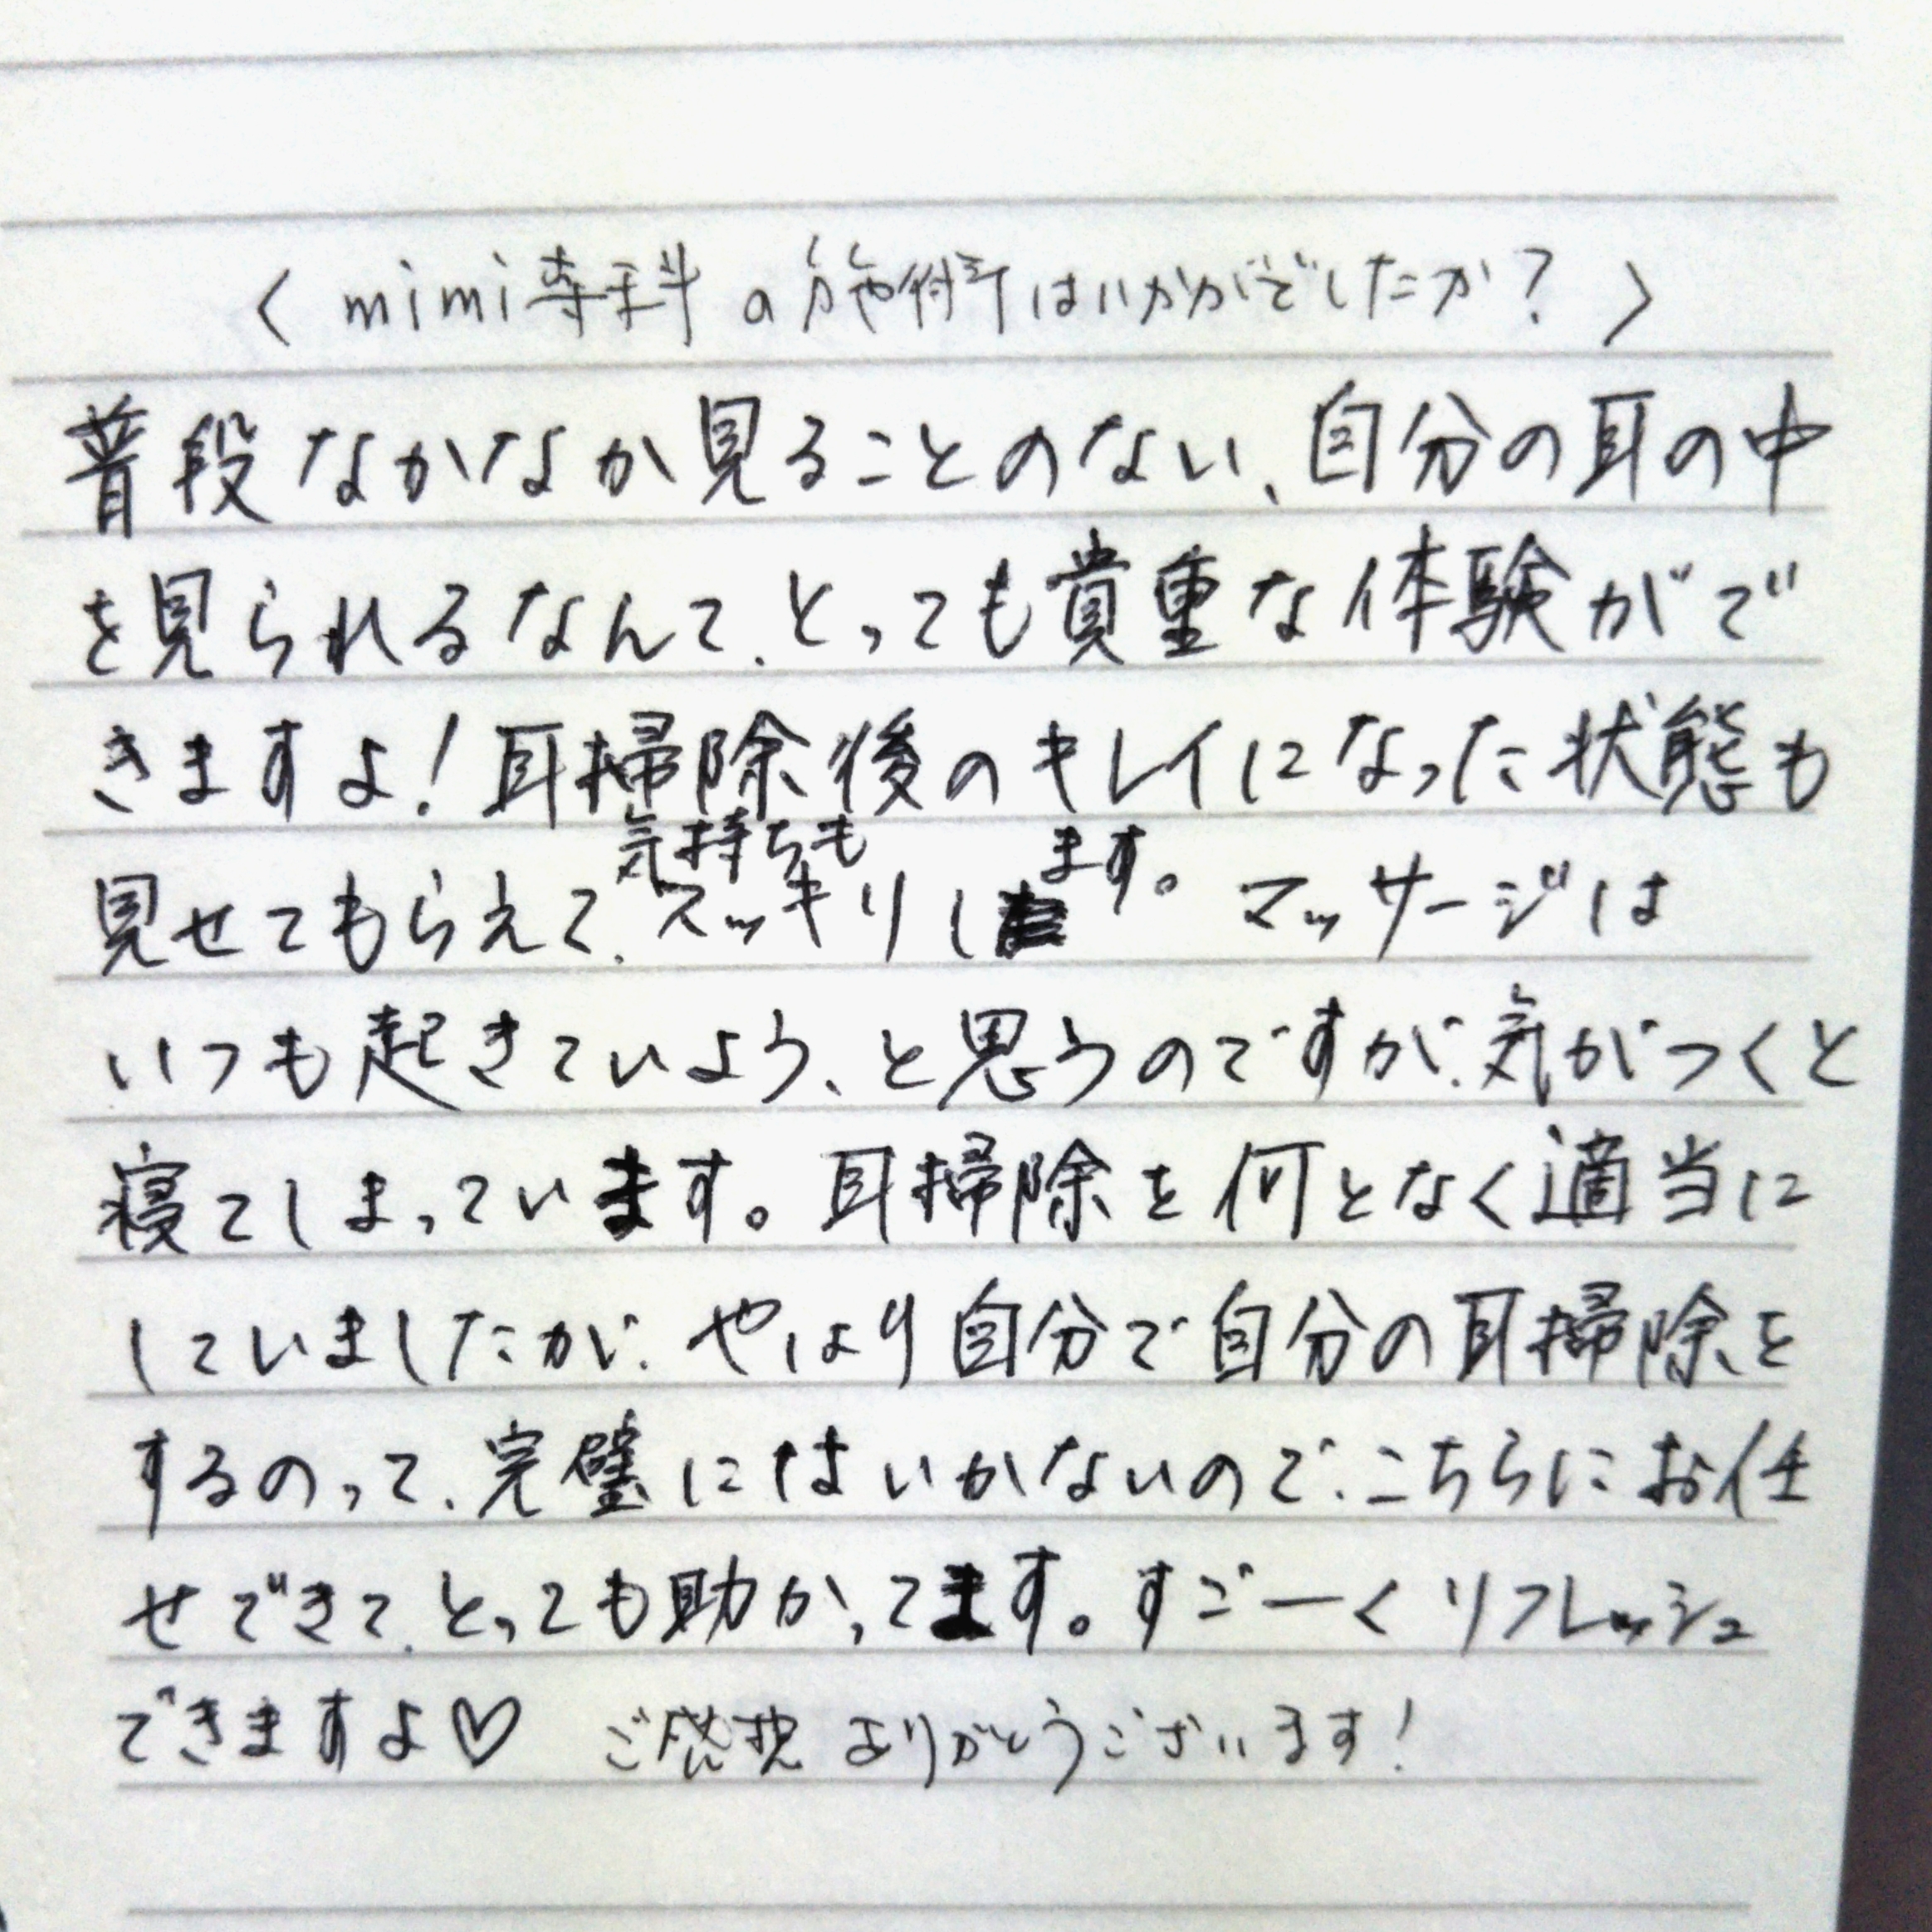 〈 mimi専科の施術はいかがでしたか？ 〉
普段なかなか見ることのない、自分の耳の中
を見られるなんて、とっても貴重な体験がで
きますよ！耳掃除後のキレイになった状態も
見せてもらえて、気持ちもスッキリします。マッサージは
いつも起きていよう、と思うのですが、気がつくと
寝てしまっています。耳掃除を何となく適当に
していましたが、やはり自分で自分の耳掃除を
するのって、完璧にはいかないので、こちらにお任
せできて、とっても助かってます。すごーくリフレッシュ
できますよ♡ ご感想ありがとうございます！